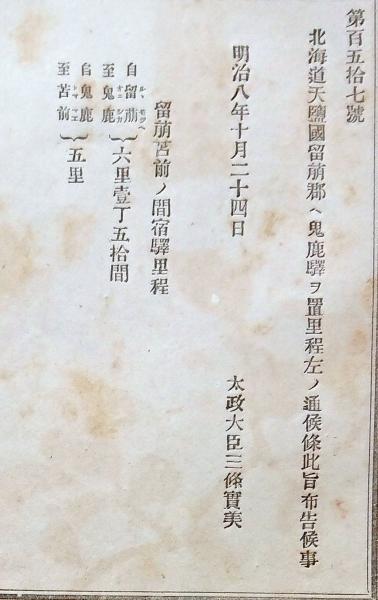 第百五拾七號
北海道天鹽國留萠郡ヘ鬼鹿驛ヲ置里程左ノ通候條此旨布告候事
明治八年十月二十四日
太政大臣三條實美
留萠苫前ノ間宿驛里程
自留萠
至鬼鹿
六里壹丁五拾間
自鬼鹿
至苫前
五里